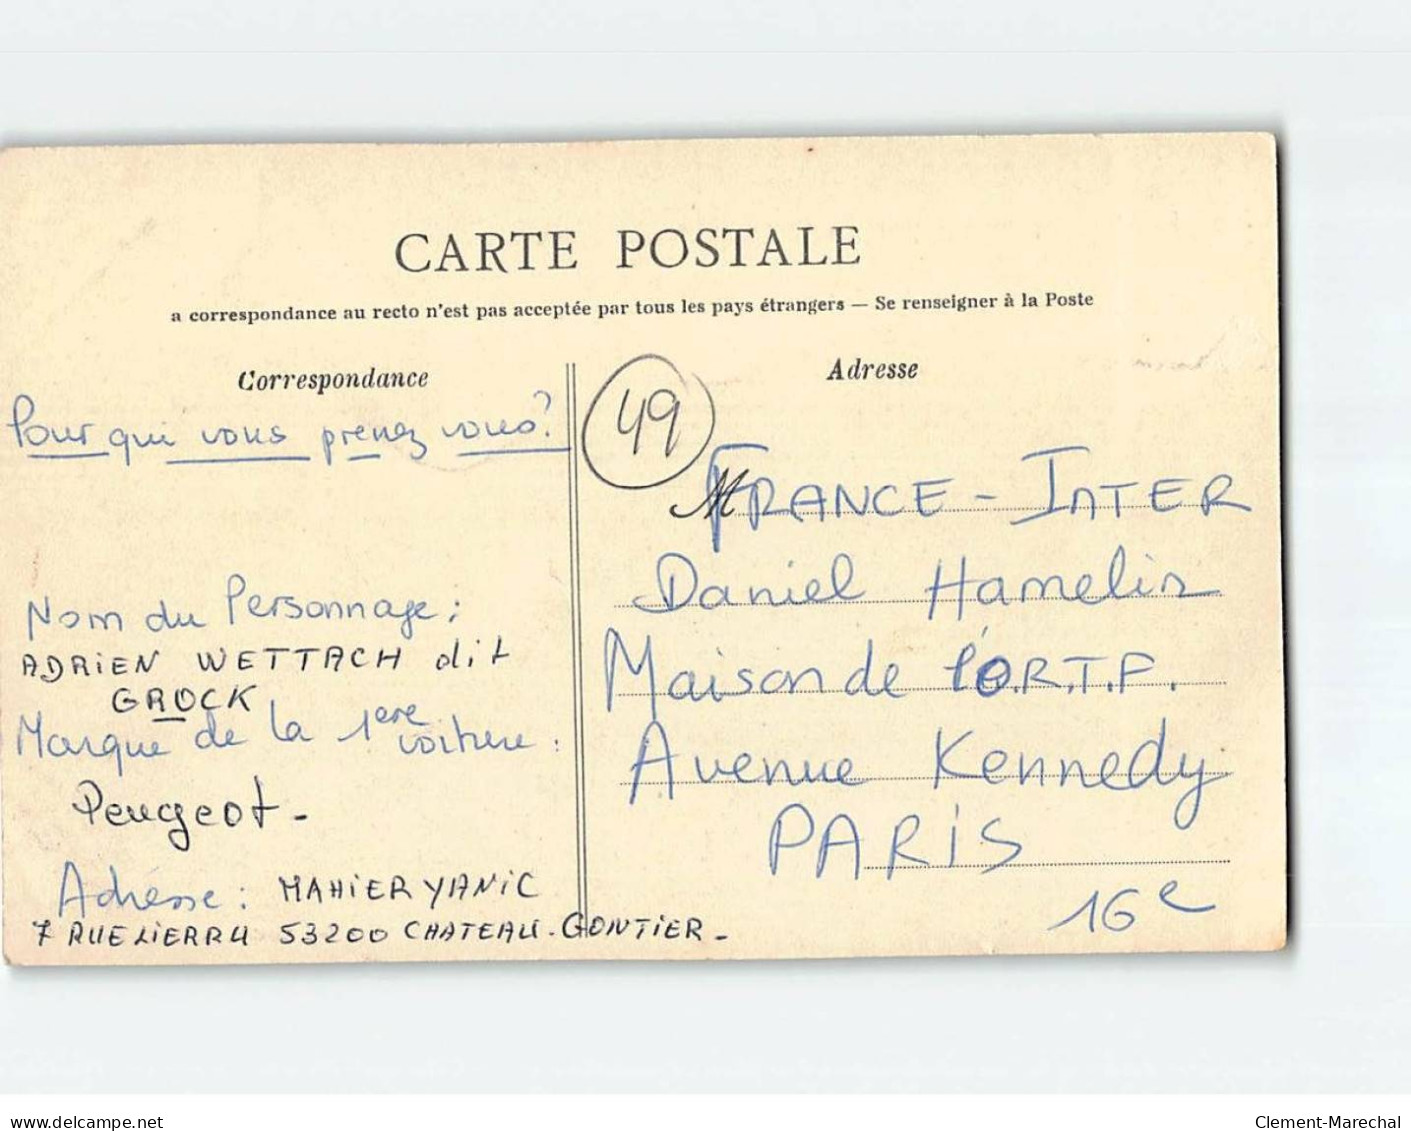 CARTE POSTALE
a correspondance au recto n'est pas acceptée par tous les pays étrangers — Se renseigner à la Poste
Correspondance
Pour qui vous prenez vous?
Nom du Personnage:
ADRIEN WETTACH dit
GROCK
Marque de la 1ère voiture:
Peugeot -
Adresse: MAHIER YANIC
7 RUE LIERRU 53200 CHATEAU-GONTIER -
Adresse
49
M
FRANCE - INTER
Daniel Hamelin
Maison de l'O.R.T.F.
Avenue Kennedy
PARIS
16e
www.delcampe.net
Clement-Marechal